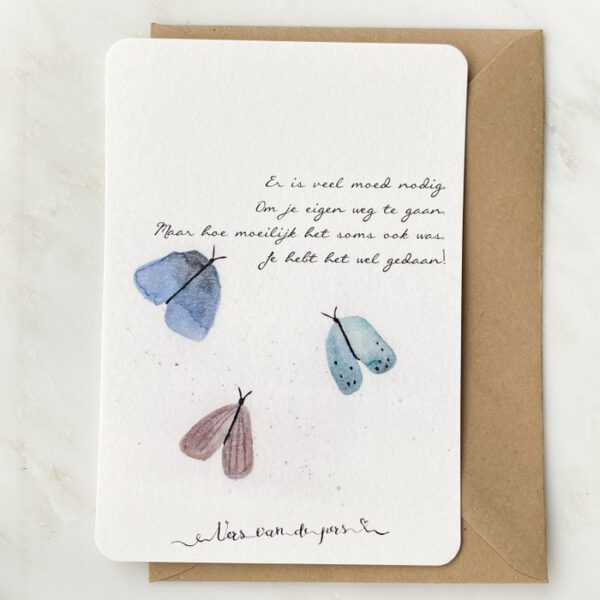 Er is veel moed nodig.
Om je eigen weg te gaan.
Maar hoe moeilijk het soms ook was.
Je hebt het wel gedaan!
Vers van de pers